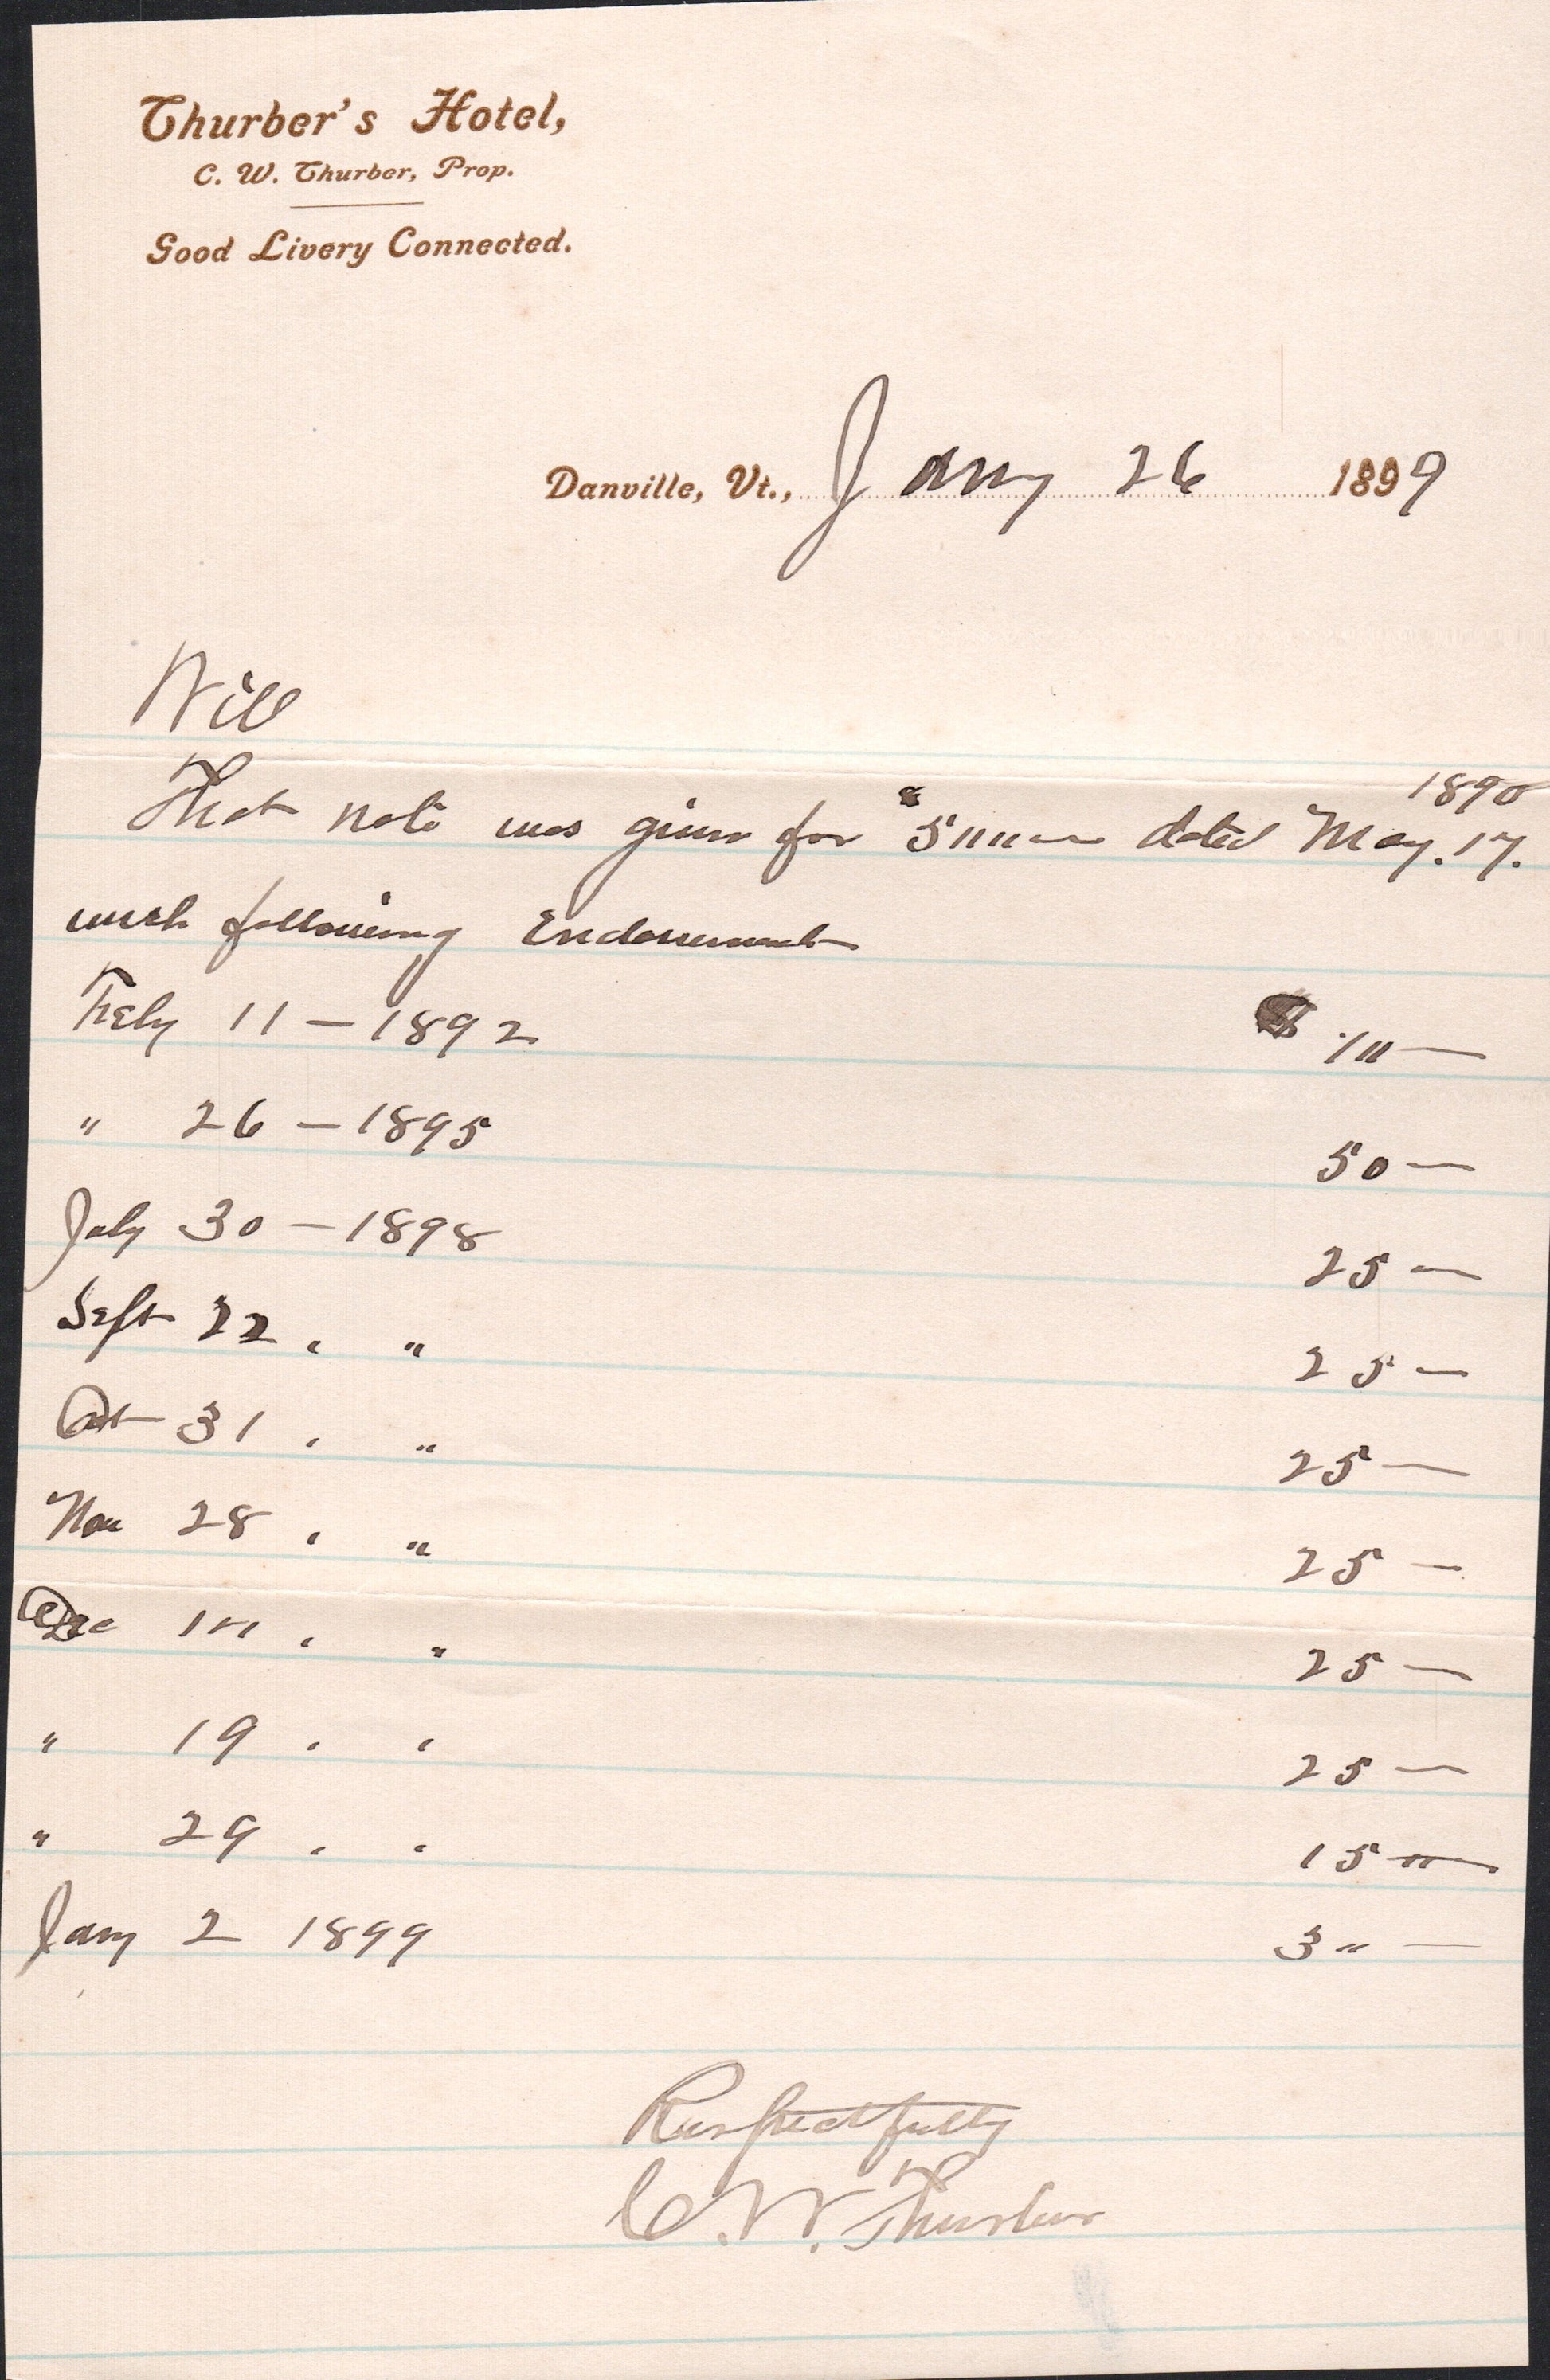 Thurber's Hotel,
C. W. Thurber, Prop.
Good Livery Connected.
Danville, Vt., Jany 26 1899
Will
1890
That note was given for $ 5"""" dated May. 17.
with following Endorsement
Feby 11 – 1892 $ 1"" —
" 26 – 1895 50 —
July 30 – 1898 25 —
Sept 22 , " 25 —
Oct 31 , " 25 —
Nov 28 , " 25 —
Dec , " 25 —
" 19 , , 25 —
" 29 , , 15 —
Jany 2 1899 3" —
Respectfully
C. W. Thurber